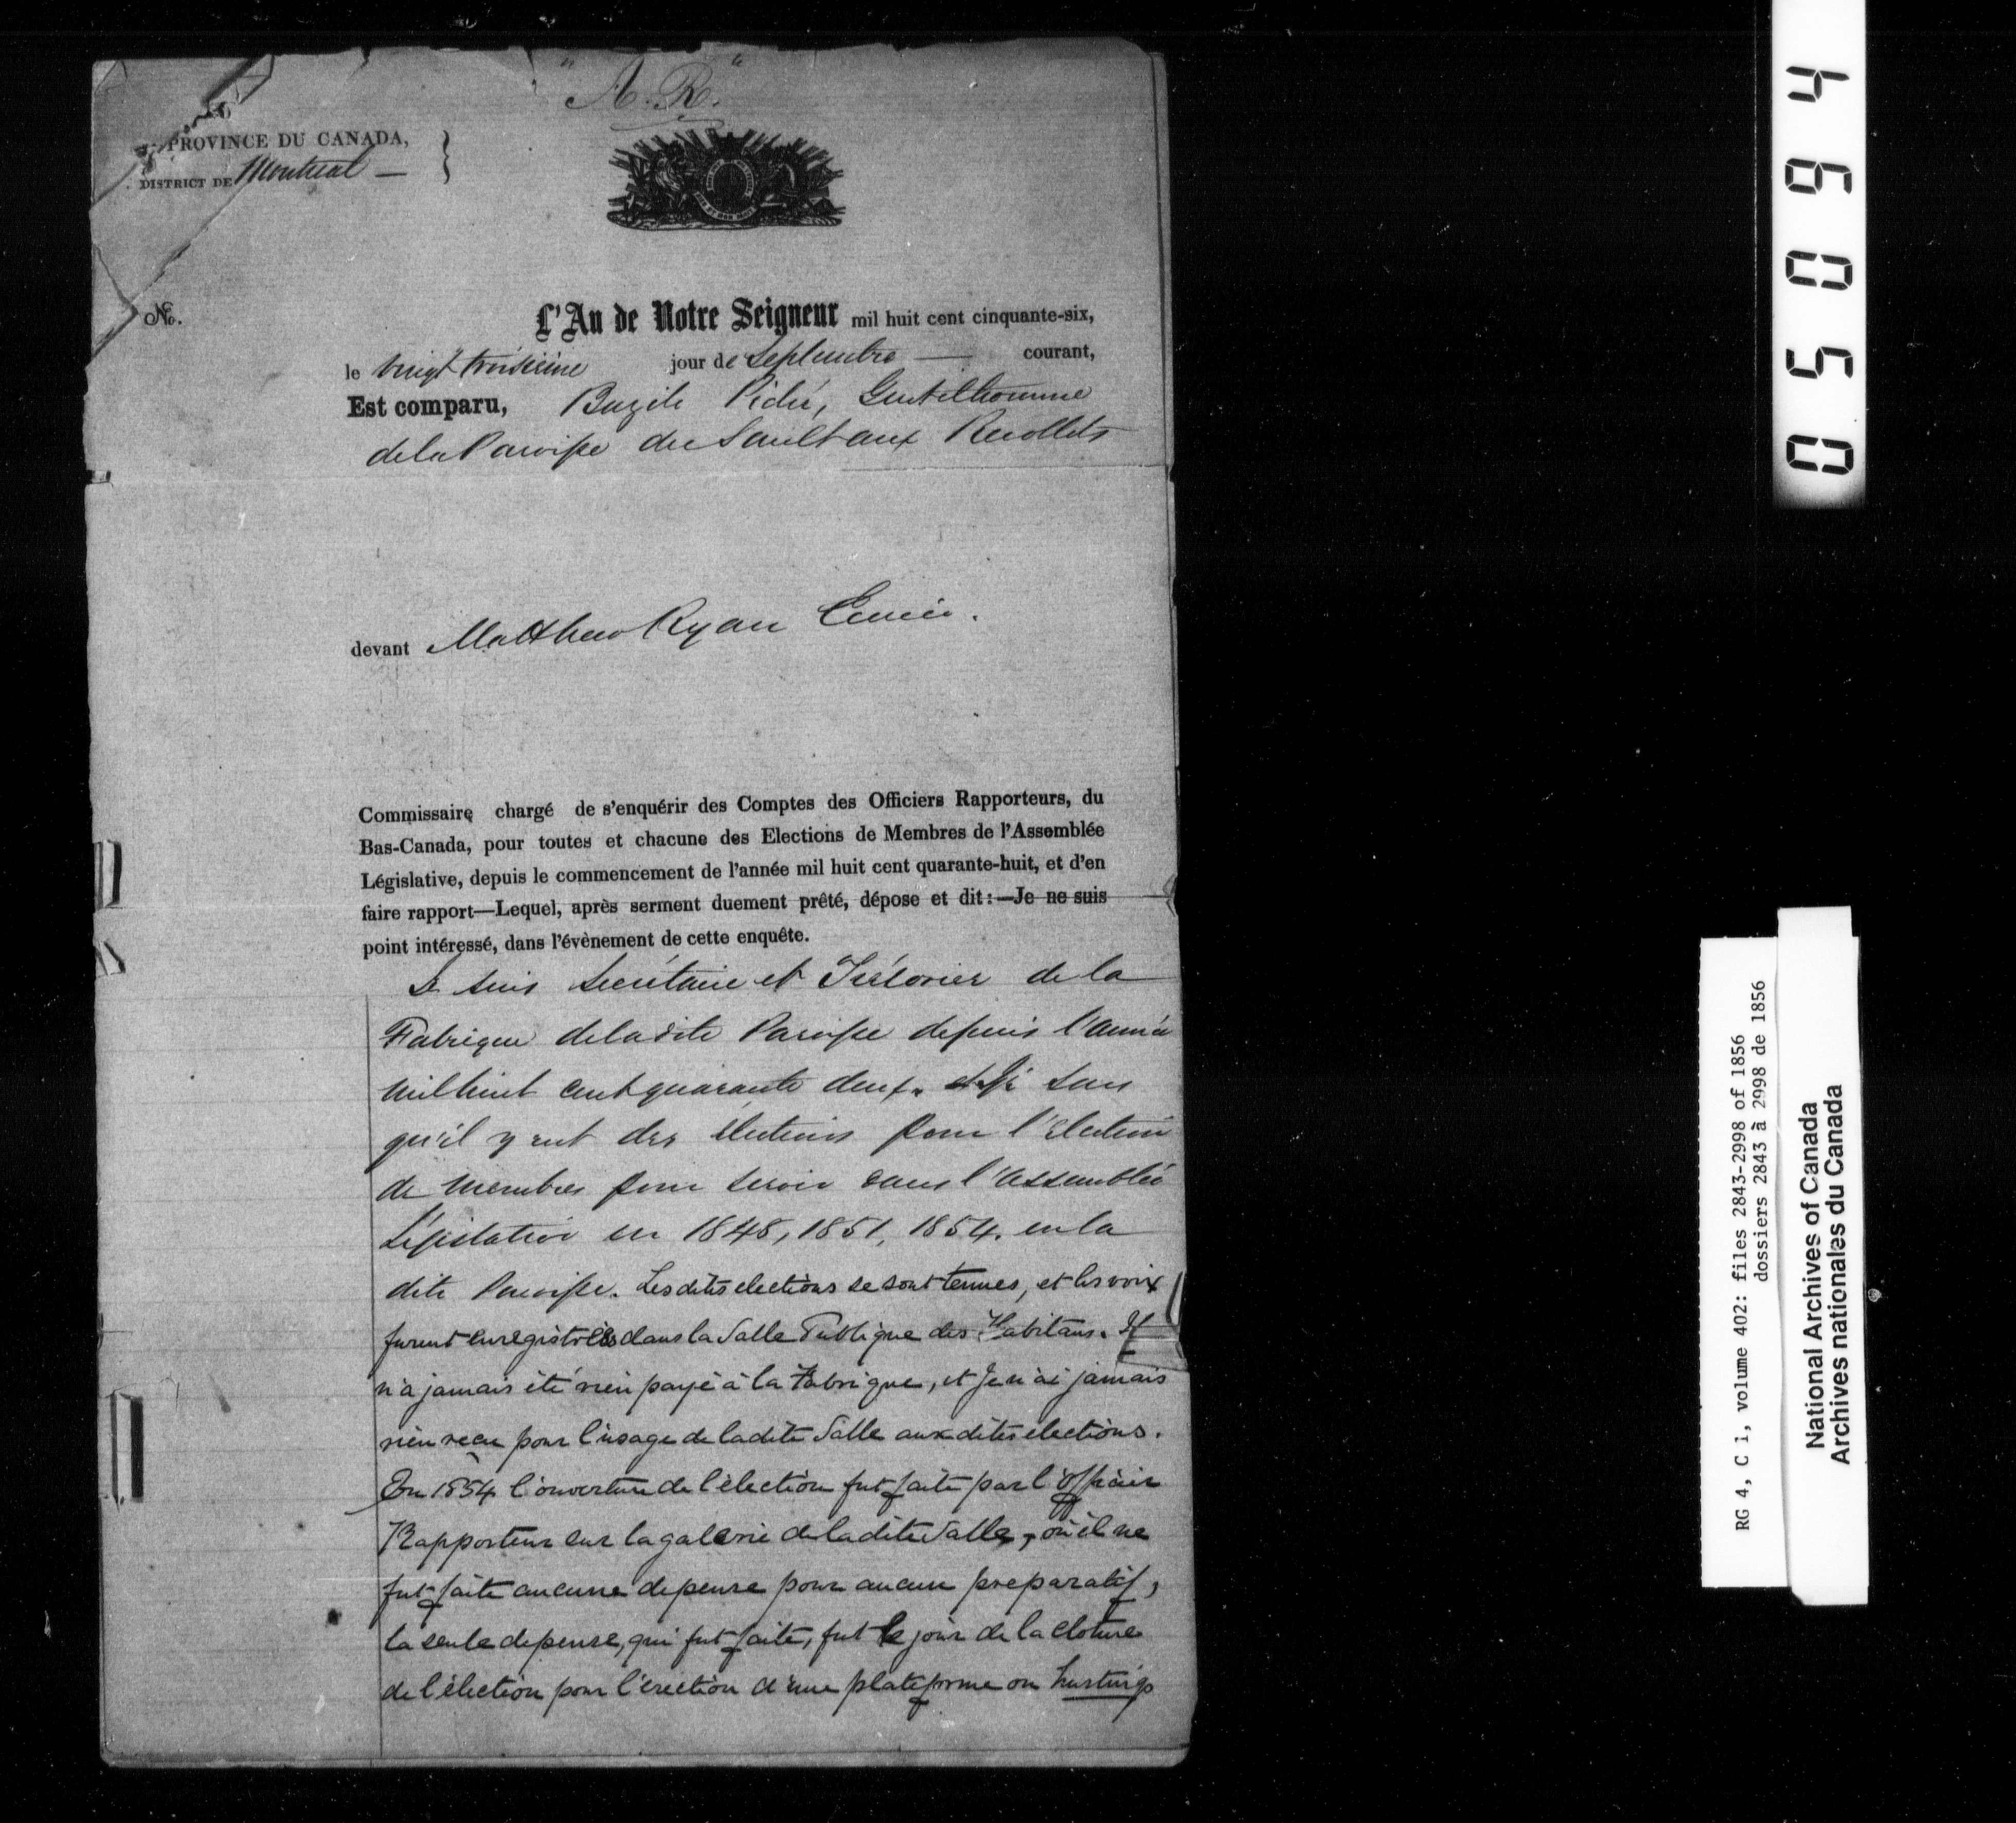 "A. R."
PROVINCE DU CANADA,
DISTRICT DE Montreal —
No.
L'An de Notre Seigneur mil huit cent cinquante-six,
le vingt troisième jour de Septembre — courant,
Est comparu, Bazile Pichè, Gentilhomme
de la Paroisse du Sault aux Recollets
devant Matthew Ryan Ecuier.
Commissaire chargé de s'enquérir des Comptes des Officiers Rapporteurs, du
Bas-Canada, pour toutes et chacune des Elections de Membres de l'Assemblée
Législative, depuis le commencement de l'année mil huit cent quarante-huit, et d'en
faire rapport—Lequel, après serment duement prêté, dépose et dit:—Je ne suis
point intéressé, dans l'évènement de cette enquête.
Je suis Secrétaire et Trésorier de la
Fabrique de la dite Paroisse depuis l'année
mil huit cent quarante deux. et Je sais
qu'il y eut des élections pour l'élection
de membres pour servir dans l'assemblée
Législative en 1848, 1851, 1854. en la
dite Paroisse. Les dites elections se sont tenues, et les voix
furent enregistrées dans la Salle Publique des Habitans. Il
n'a jamais été rien payé à la Fabrique, et Je n'ai jamais
rien reçu pour l'usage de la dite Salle aux dites elections.
En 1854 l'ouverture de l'élection fut faite par l'Officier
Rapporteur sur la galerie de la dite Salle, où il ne
fut faite aucune depense pour aucun preparatif,
la seule depense, qui fut faite, fut le jour de la cloture
de l'élection pour l'érection d'une plateforme ou hustings
05094
RG 4, C 1, volume 402: files 2843-2998 of 1856
dossiers 2843 à 2998 de 1856
National Archives of Canada
Archives nationales du Canada